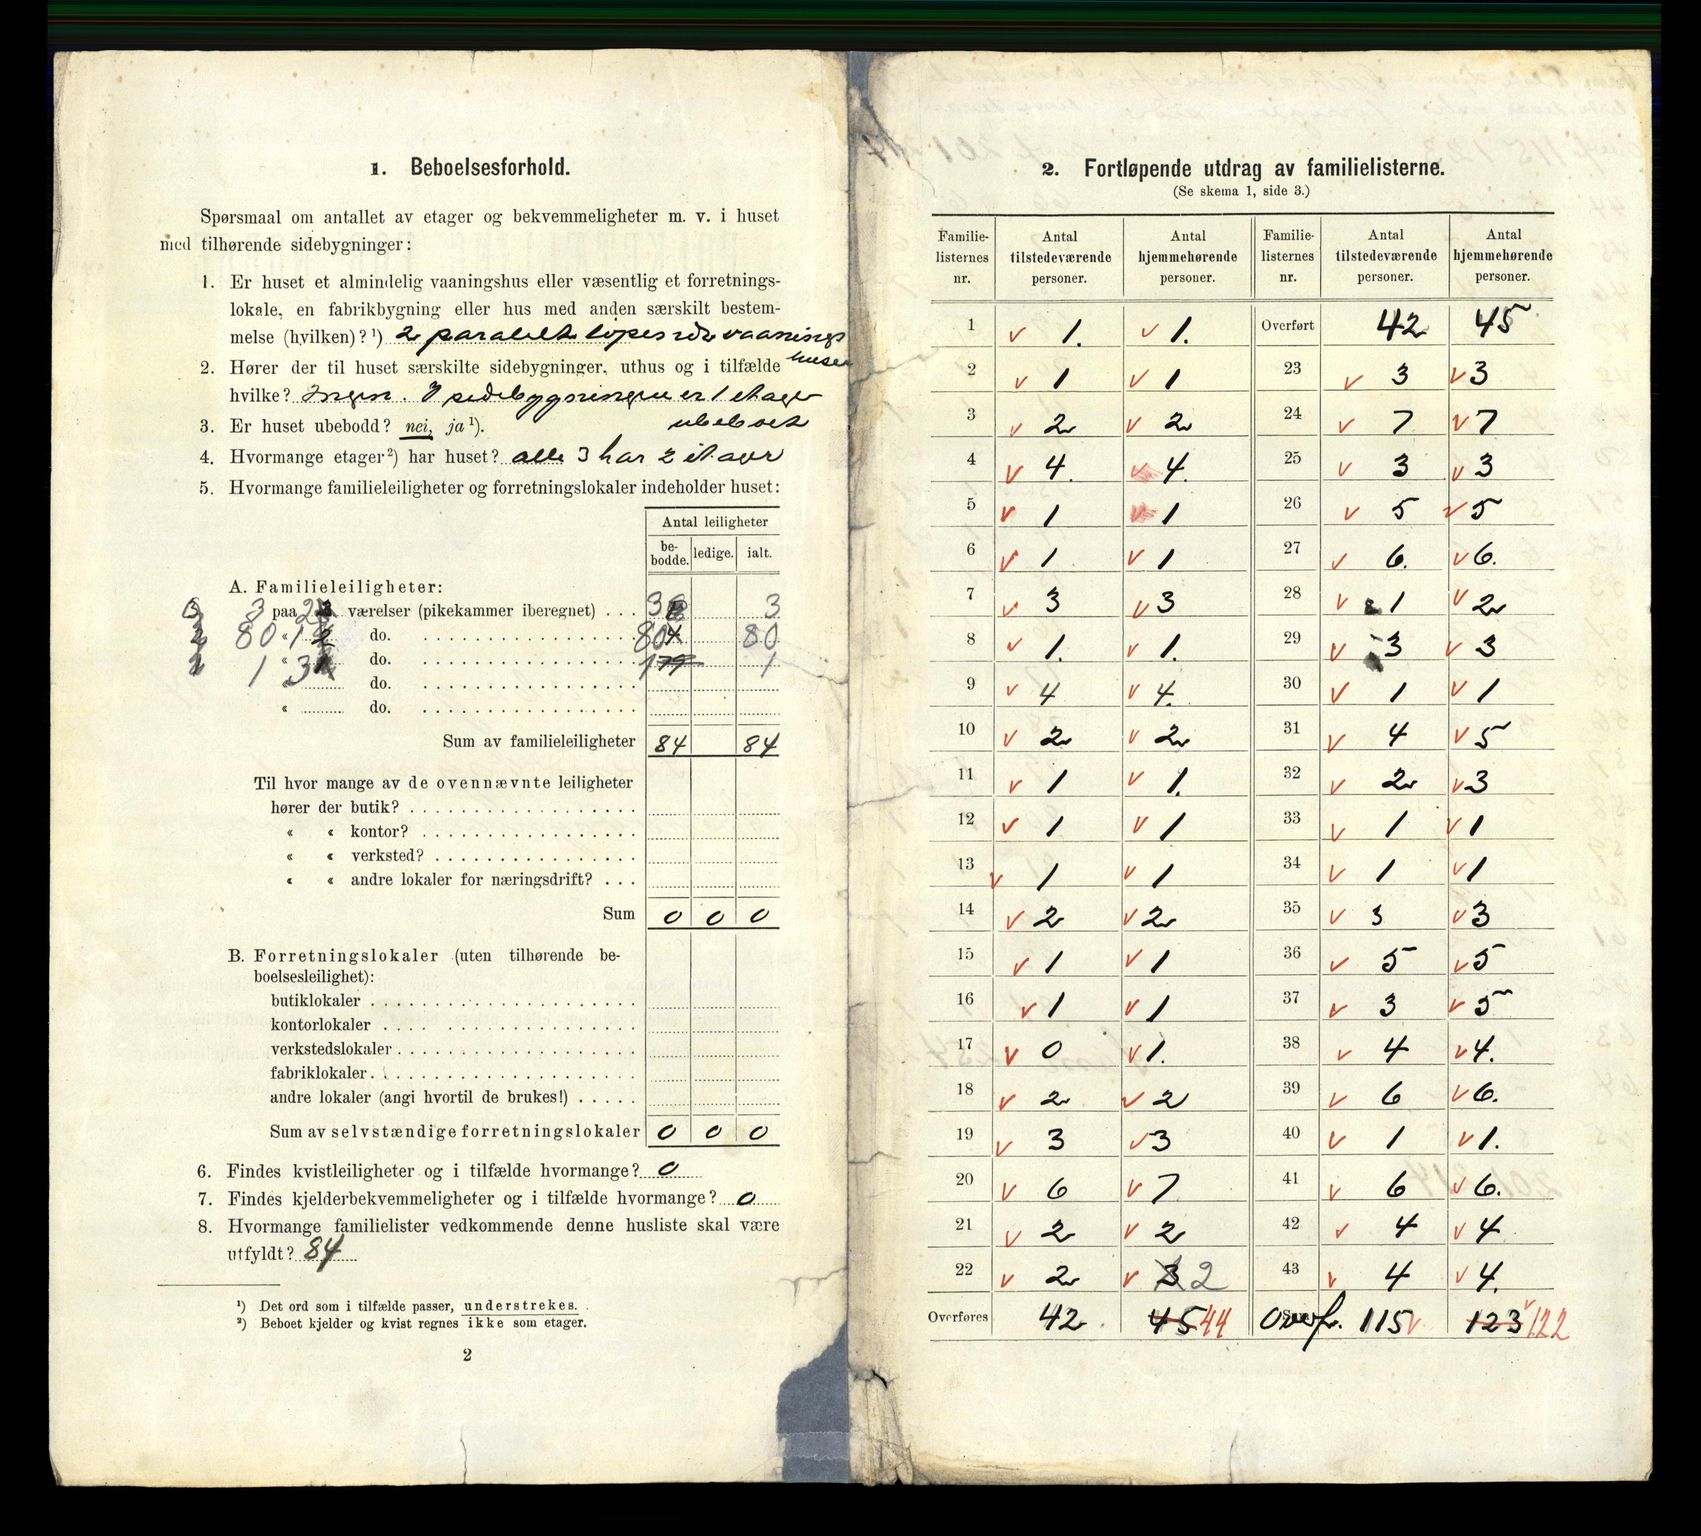 1. Beboelsesforhold.
Spørsmaal om antallet av etager og bekvemmeligheter m. v. i huset
med tilhørende sidebygninger:
1. Er huset et almindelig vaaningshus eller væsentlig et forretnings-
lokale, en fabrikbygning eller hus med anden særskilt bestem-
melse (hvilken)? ¹) 2 paralelt løpende vaanings
huser
2. Hører der til huset særskilte sidebygninger, uthus og i tilfælde
hvilke? Ingen. I sidebygningen er 1 etage
ubeboet
3. Er huset ubebodd? nei, ja ¹).
4. Hvormange etager ²) har huset? alle 3 har 2 etager
5. Hvormange familieleiligheter og forretningslokaler indeholder huset:
Antal leiligheter
be-bodde. ledige. ialt.
A. Familieleiligheter:
3 paa 2 værelser (pikekammer iberegnet) . . . 3 3
80 « 1 do. 80 80
1 « 3 do. 1 1
« do.
« do.
Sum av familieleiligheter 84 84
Til hvor mange av de ovennævnte leiligheter
hører der butik?
« « kontor?
« « verksted?
« « andre lokaler for næringsdrift? . . .
Sum 0 0 0
B. Forretningslokaler (uten tilhørende be-
boelsesleilighet):
butiklokaler
kontorlokaler
verkstedslokaler
fabriklokaler
andre lokaler (angi hvortil de brukes!)
Sum av selvstændige forretningslokaler 0 0 0
6. Findes kvistleiligheter og i tilfælde hvormange? 0
7. Findes kjelderbekvemmeligheter og i tilfælde hvormange? 0
8. Hvormange familielister vedkommende denne husliste skal være
utfyldt? 84
¹) Det ord som i tilfælde passer, understrekes.
²) Beboet kjelder og kvist regnes ikke som etager.
2
2. Fortløpende utdrag av familielisterne.
(Se skema 1, side 3.)
Familie-listernes nr. Antal tilstedeværende personer. Antal hjemmehørende personer. Familie-listernes nr. Antal tilstedeværende personer. Antal hjemmehørende personer.
1 v 1. v 1. Overført 42 45
2 v 1 v 1 23 v 3 v 3
3 v 2 v 2 24 v 7 v 7
4 v 4. v 4. 25 v 3 v 3
5 v 1 v 1 26 v 5 v 5
6 v 1 v 1 27 v 6. v 6.
7 v 3 v 3 28 v 1 v 2
8 v 1. v 1. 29 v 3 v 3
9 v 4 v 4. 30 v 1 v 1
10 v 2 v 2 31 v 4 v 5
11 v 1 v 1. 32 v 2 v 3
12 v 1 v 1 33 v 1 v 1
13 v 1 v 1 34 v 1 v 1
14 v 2 v 2 35 v 3 v 3
15 v 1 v 1 36 v 5 v 5
16 v 1 v 1 37 v 3 v 5
17 v 0 v 1. 38 v 4 v 4.
18 v 2 v 2 39 v 6 v 6.
19 v 3 v 3 40 v 1 v 1.
20 v 6 v 7 41 v 6 v 6.
21 v 2 v 2 42 v 4 v 4
22 v 2 v 3 2 43 v 4 v 4.
Overføres 42 45 44 Overf. 115 v 123 v 122